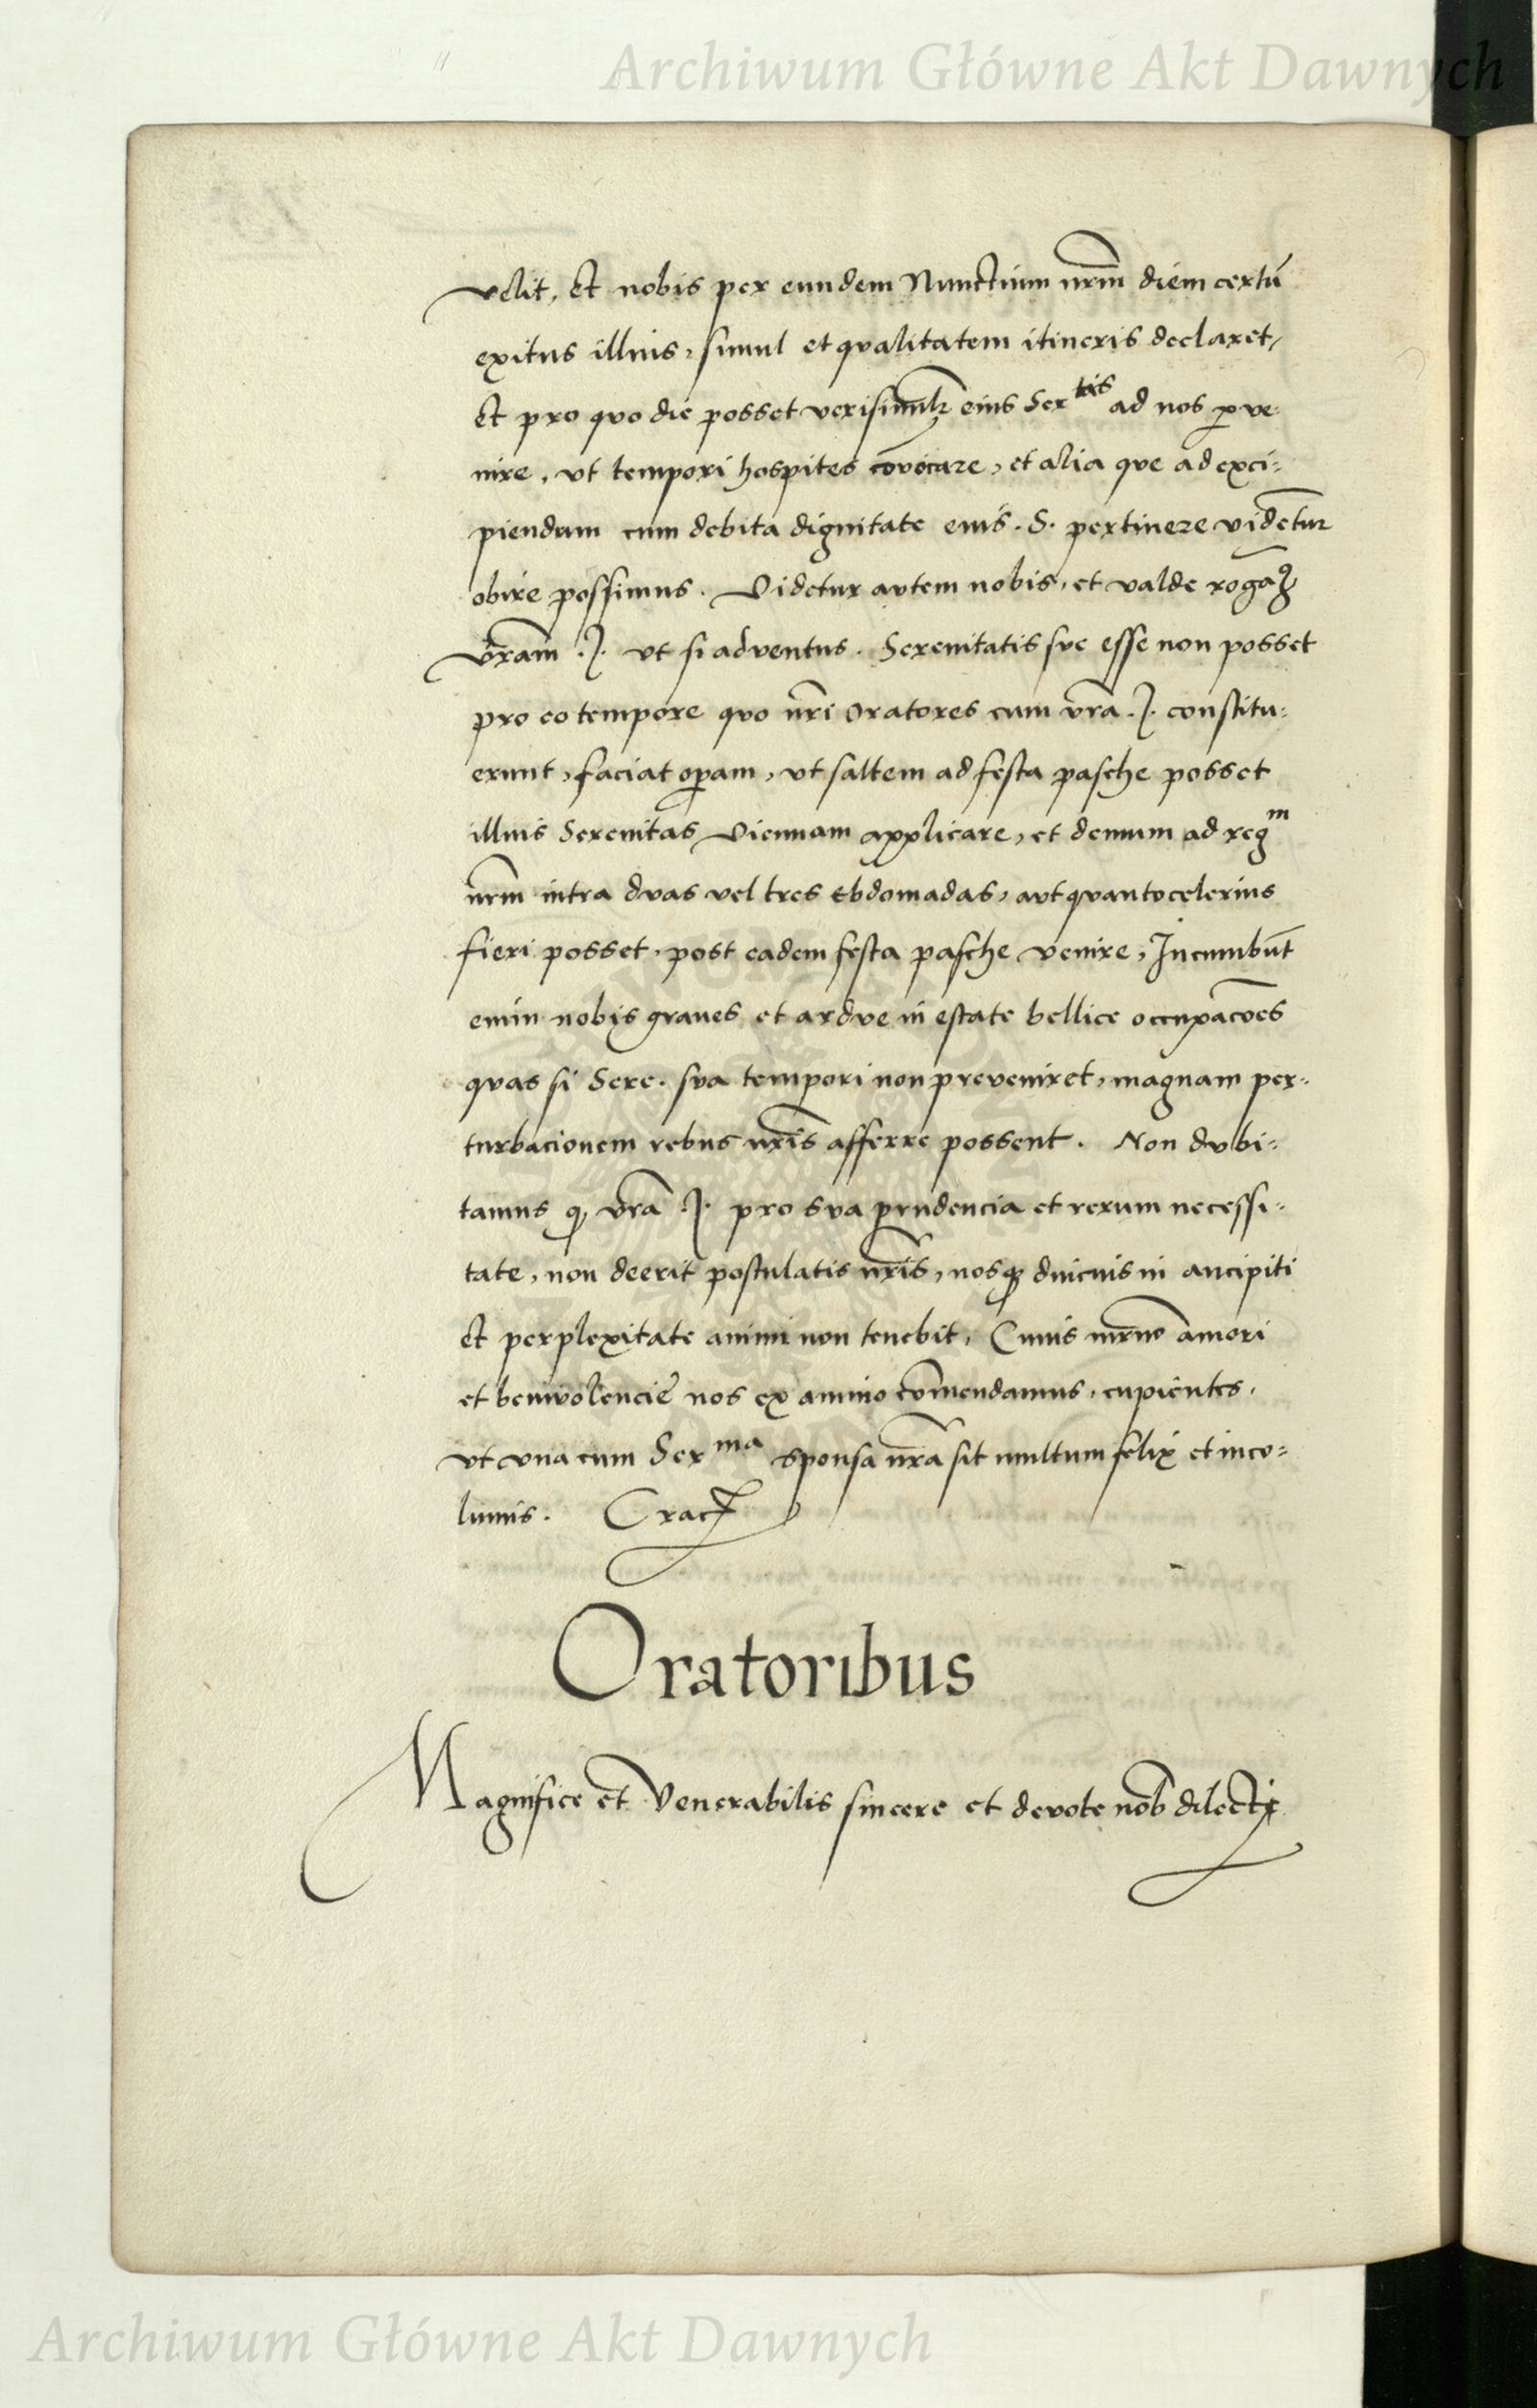 Archiwum Główne Akt Dawnych
velit, Et nobis per eundem Nunctium nr̄m diem certū
exitus illius, simul et qualitatem itineris declaret,
Et pro quo die posset verisimilr eius Ser tis ad nos perve
nire, ut tempori hospites cōvocare, et alia que ad exci=
piendam cum debita dignitate eius. S. pertinere videntur
obire possimus. Videtur autem nobis, et valde rogam9
vr̄am .J. ut si adventus. Serenitatis sue esse non posset
pro eo tempore quo nr̄i Oratores cum vr̄a .J. constitu=
erunt, faciat opam, ut saltem ad festa pasche posset
illius Serenitas Viennam applicare, et demum ad reg m
nr̄m intra duas vel tres Ebdomadas, aut quanto celerius
fieri posset, post eadem festa pasche venire, Incumbūt
enim nobis graves et ardue in estate bellice occupac̄oes
quas si Sere. sua tempori non preveniret, magnam per=
turbacionem rebus nr̄is afferre possent. Non dubi=
tamus q, vr̄a .J. pro sua prudencia et rerum necessi=
tate, non deerit postulatis nr̄is, nosq diucius in ancipiti
Et perplexitate animi non tenebit, Cuius amori
et benivolencie nos ex animo cōmendamus, cupientes,
ut una cum Ser ma sponsa nr̄a sit multum felix et inco=
lumis. Crac
Oratoribus
Magnifice et Venerabilis sincere et devote nob dilecti
Archiwum Główne Akt Dawnych